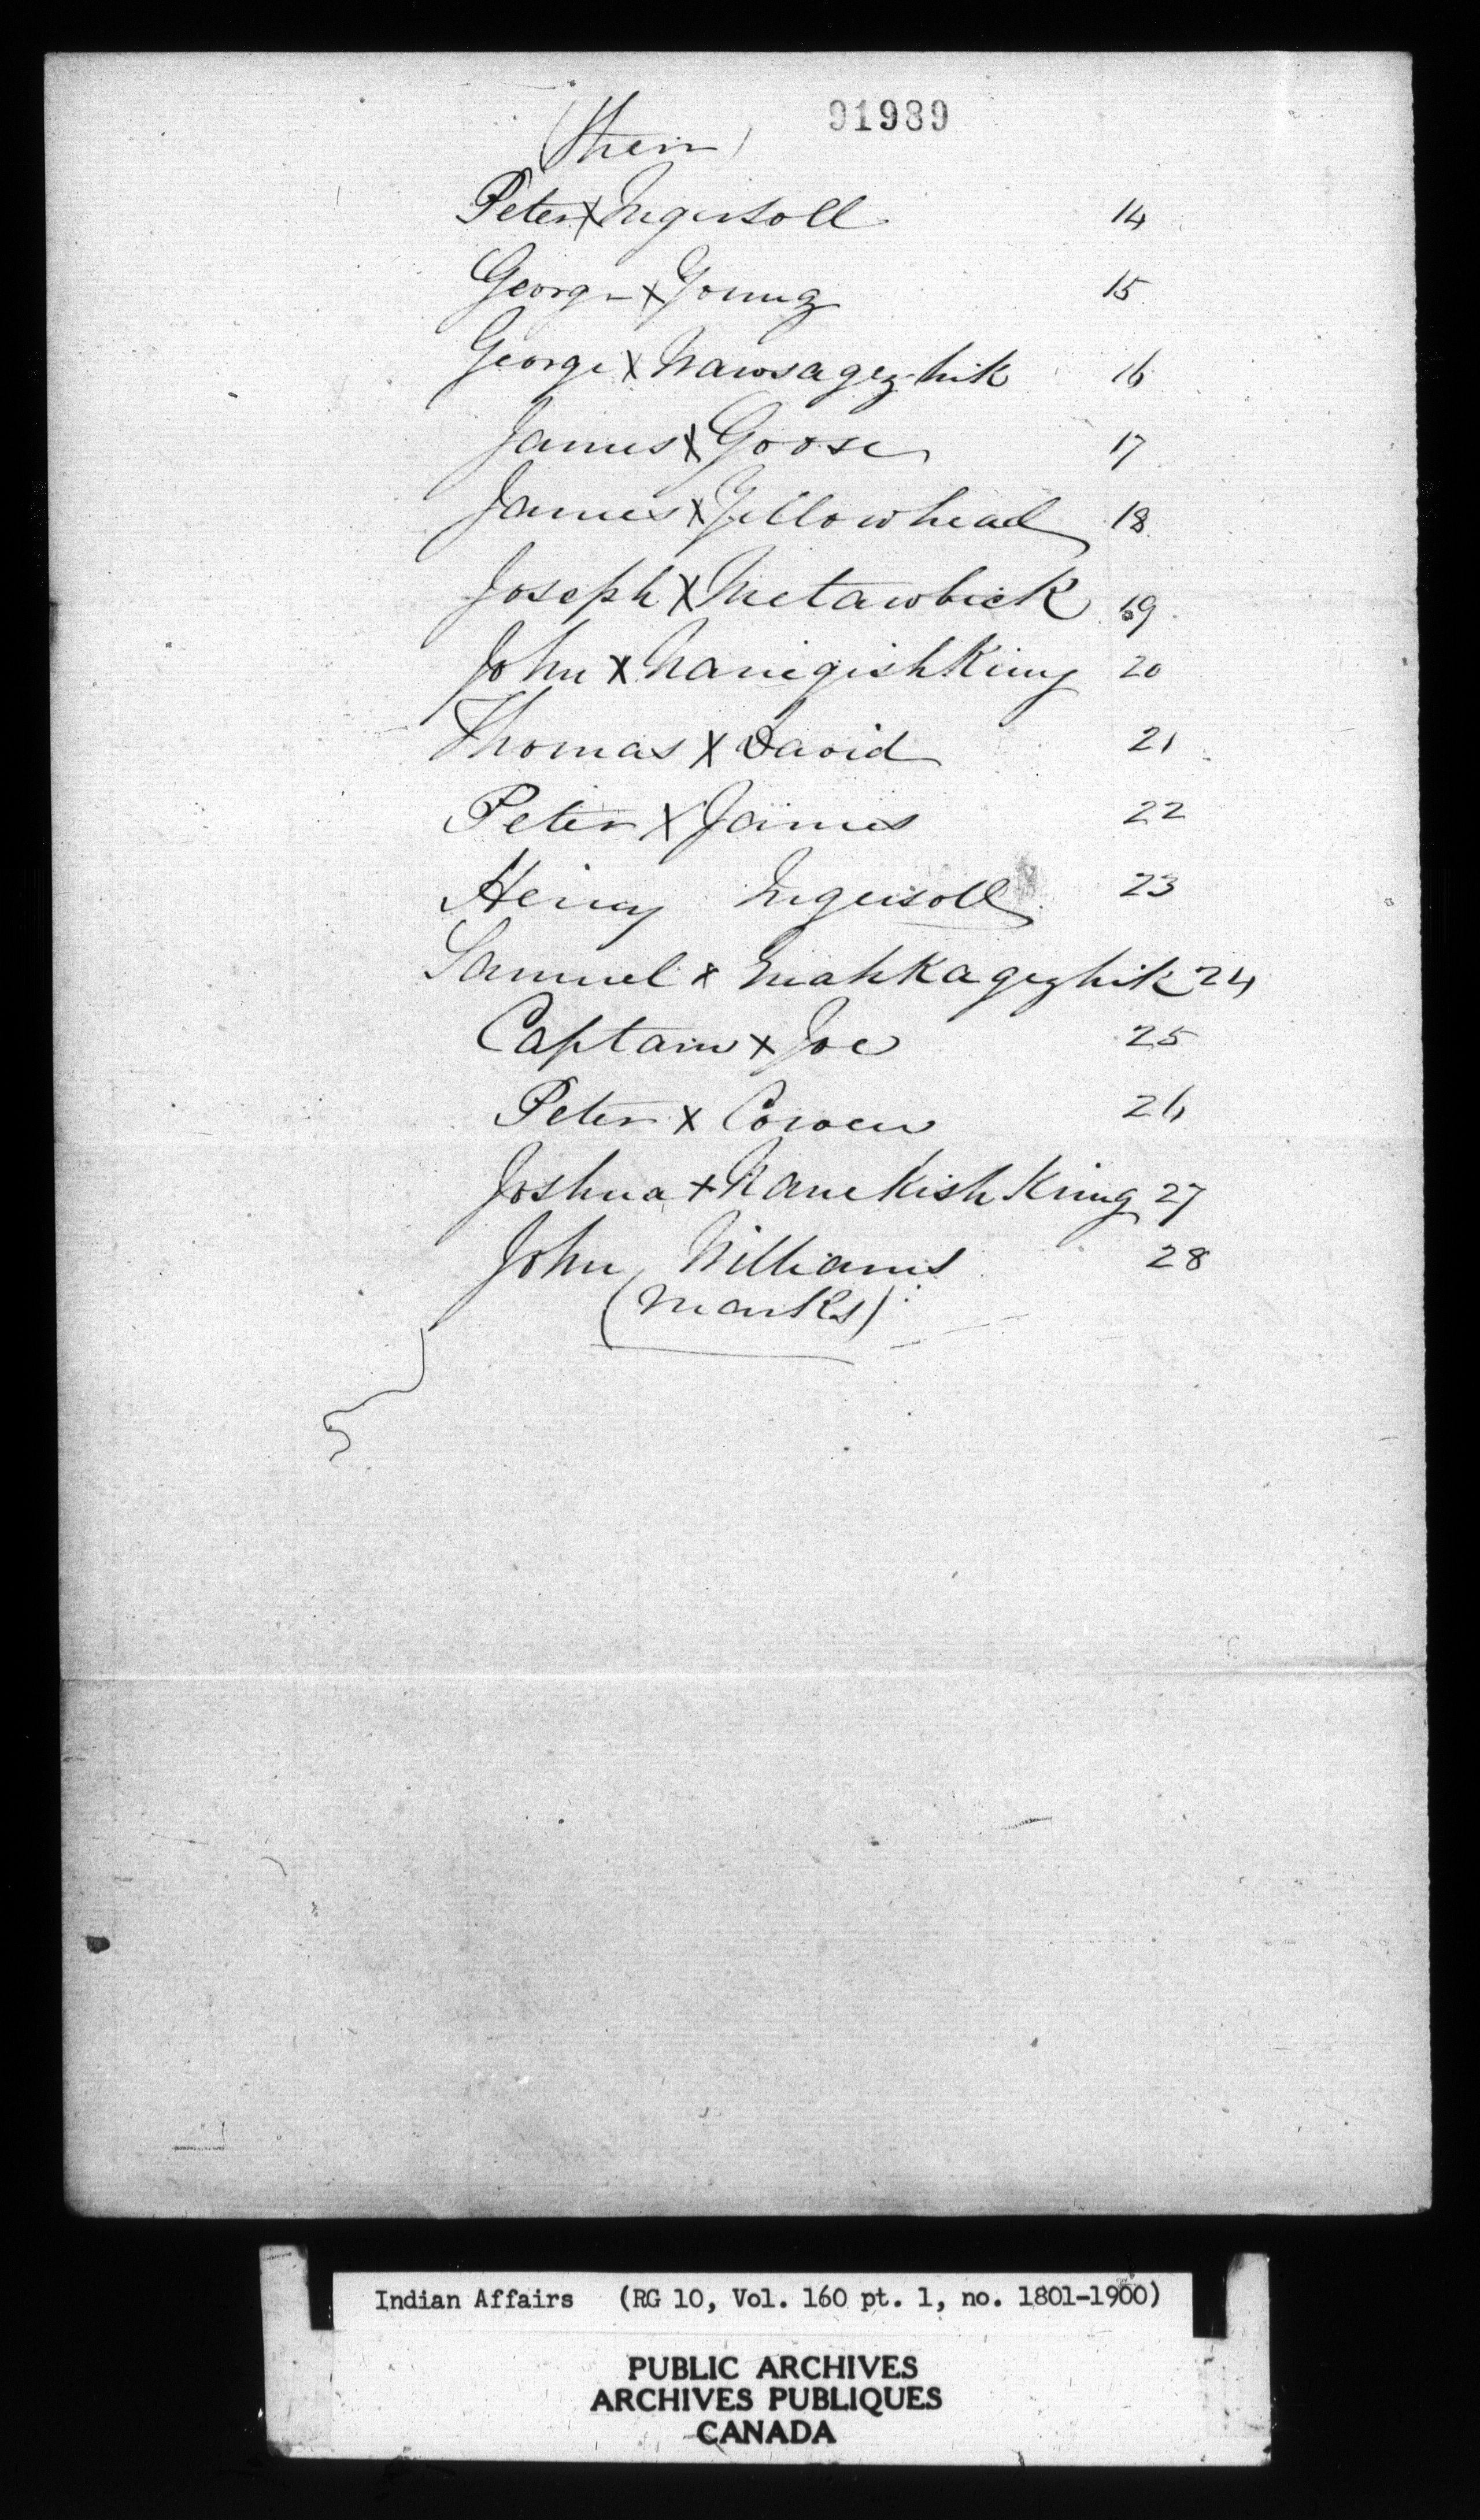 91989
(Their)
Peter X Ingersoll 14
George X Young 15
George X Nawsagezhik 16
James X Goose 17
James X Yellowhead 18
Joseph X Metawbick 19
John X Nanigishking 20
Thomas X David 21
Peter X James 22
Henry Ingersoll 23
Samuel x Mahkagezhik 24
Captain x Joe 25
Peter x Cowen 26
Joshua + Nanekishking 27
John Williams 28
(marks)
Indian Affairs (RG 10, Vol. 160 pt. 1, no. 1801-1900)
PUBLIC ARCHIVES
ARCHIVES PUBLIQUES
CANADA